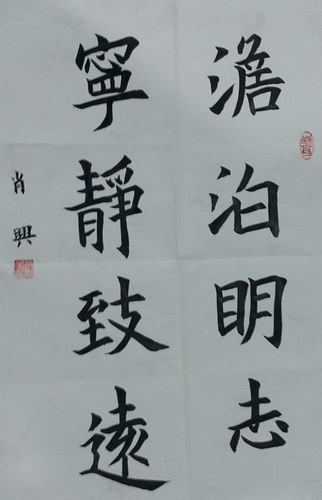 澹泊明志
寧靜致遠
肖興